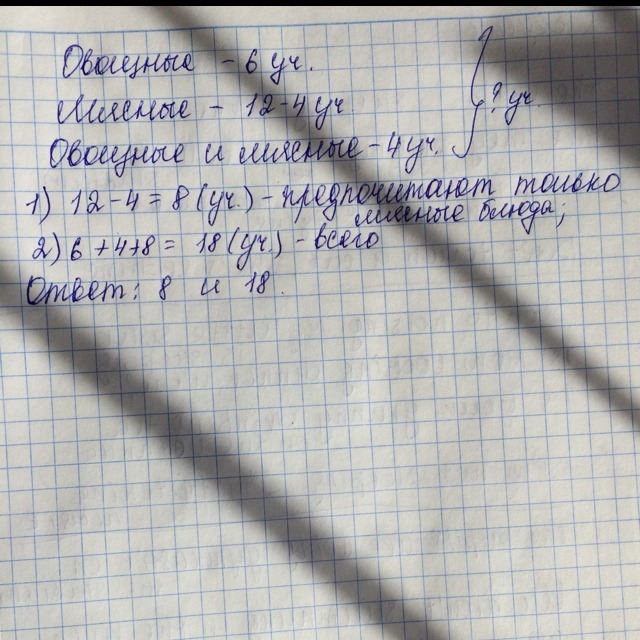 Овощные - 6 уч.
Мясные - 12-4 уч
? уч.
Овощные и мясные - 4 уч.
1) 12-4=8 (уч.) - предпочитают только
мясные блюда;
2) 6+4+8= 18 (уч.) - всего
Ответ: 8 и 18.